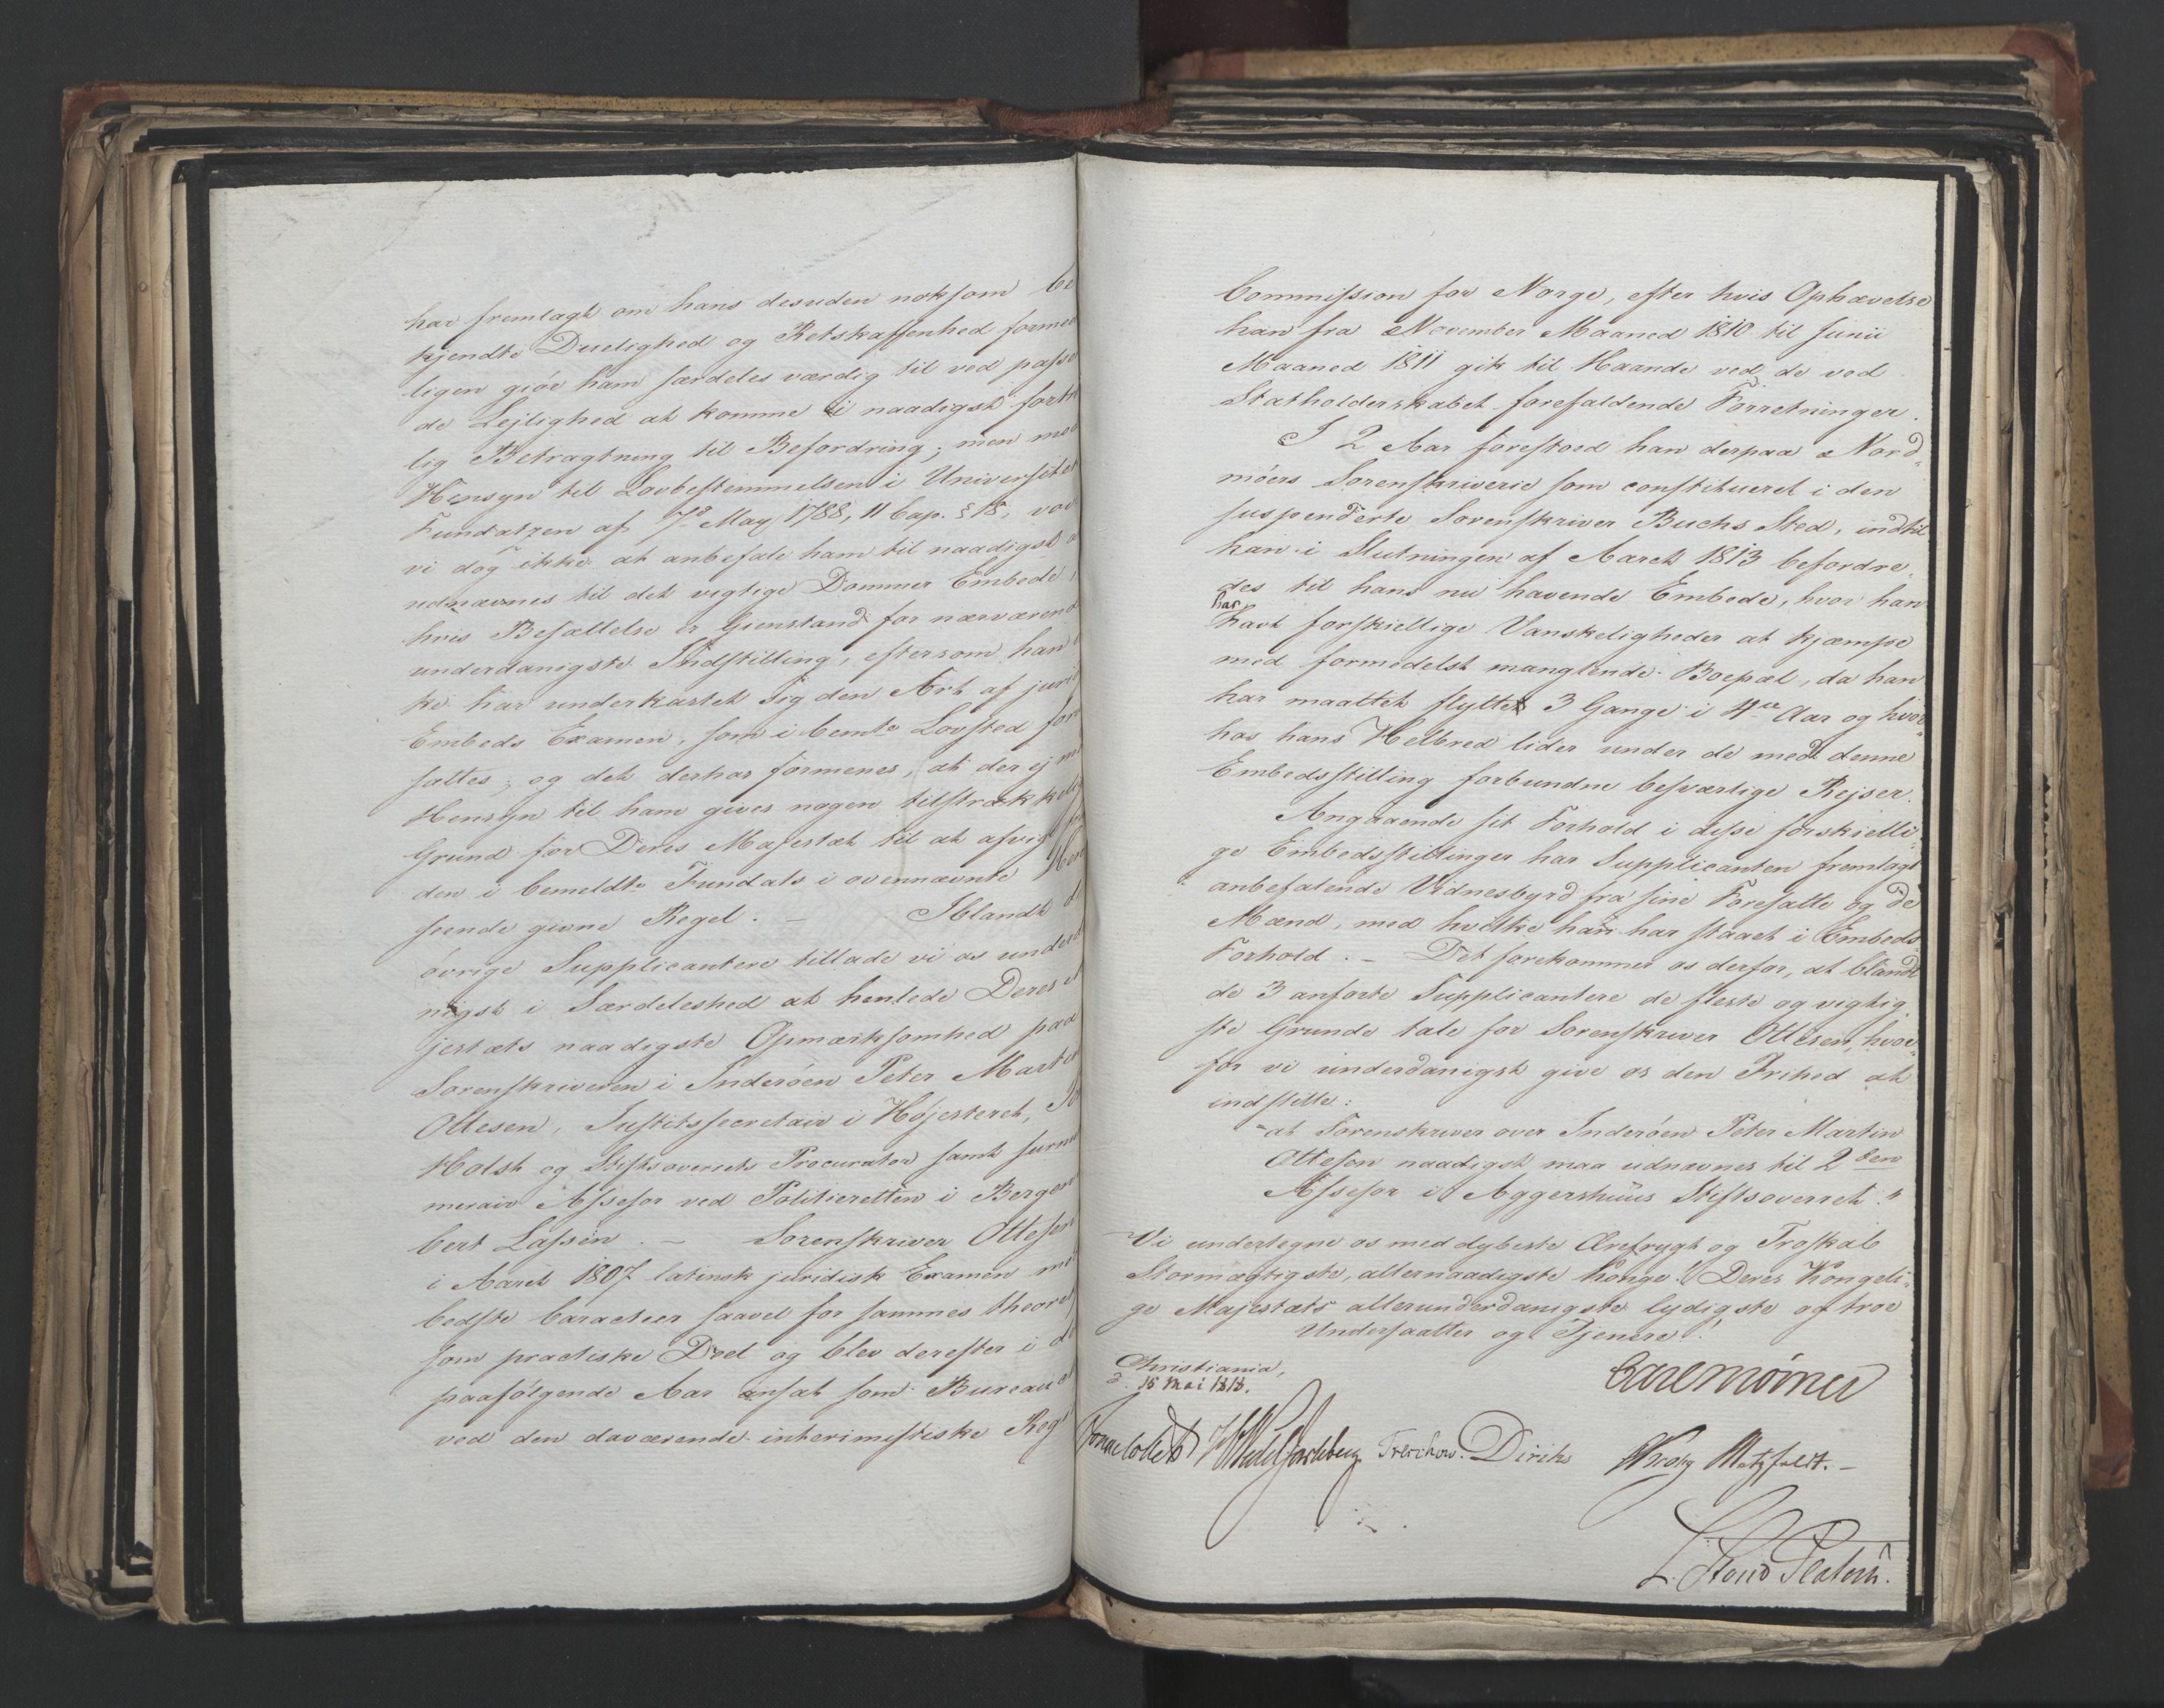 har fremlagt om hans desuden noksom be
kjendte Duelighed og Retskaffenhed formee
ligen giør ham særdeles værdig til ved passe
de Lejlighed at komme i naadigst fortri
lig Betragtning til Befordring; men med
Hensyn til Lovbestemmelsen i Universitet
Fundatzen af 7de May 1788, 11 Cap. § 18, vove
vi dog ikke at anbefale ham til naadigst a
udnævnes til det vigtige Dommer Embede,
hvis Besættelse er Gienstand for nærværend
underdanigste Indstilling, eftersom han i
ke har underkastet sig den Art af juri
Embeds Examen, som i bemte Lovsted fore
sættes; og det derhos formenes, at der ej med
Hensyn til ham gives nogen tilstrækkelig
Grund for Deres Majestæt til at afvige fra
den i bemeldte Fundats i ovennævnte Hen
seende givne Regel. – Iblandt de
øvrige Supplicantere tillade vi os underd
nigst i Særdeleshed at henlede Deres M
jestæts naadigste Opmærksomhed paa
Sorenskriveren i Inderøen Peter Martin
Ottesen, Justitssecretair i Højesteret,
Holst og Stiftsoverrets Procurator samt surnu
merair Assesor ved Politieretten i Bergen
bert Lassen. – Sorenskriver Ottesen
i Aaret 1807 latinsk juridisk Examen med
bedste Caracteer saavel for sammes theoret
som practiske Deel og blev derefter i de
paafølgende Aar ansat som Bureau
ved den daværende interimistiske Reg
Commission for Norge, efter hvis Ophævelse
han fra November Maaned 1810 til Junii
Maaned 1811 gik til Haande ved de ved
Statholderskabet forefaldende Forretninger.
I 2 Aar forestoed han derpaa Nord„
møers Sorenskriverie som constitueret i den
suspenderte Sorenskriver Buchs Sted, indtil
han i Slutningen af Aaret 1813 befordre„
des til hans nu havende Embede, hvor han
har
havt forskiellige Vanskeligheder at kjæmpe
med formedelst manglende Boepæl, da han
har maattet flytte 3 Gange i 4re Aar og hvor„
hos hans Helbred lider under de med denne
Embedsstilling forbundne besværlige Rejser.
Angaaende sit Forhold i disse forskielli„
ge Embedsstillinger har Supplicanten fremlagt
anbefalende Vidnesbyrd fra sine Foresatte og de
Mænd, med hvilke han har staaet i Embeds„
Forhold. – Det forekommer os derfor, at blandt
de 3 anførte Supplicantere de fleste og vigtig„
ste Grunde tale for Sorenskriver Ottesen, hvor„
for vi underdanigst give os den Frihed at
indstille:
"at Sorenskriver over Inderøen Peter Martin
Ottesen naadigst maa udnævnes til 2den
Assesor i Aggershuus Stiftsoverret."
Vi undertegne os med dybeste Ærefrygt og Troskab
Stormægtigste, allernaadigste Konge! Deres Kongeli„
ge Majestæts allerunderdanigste lydigste og troe
Undersaatter og Tjenere!
Christiania,
d. 15 Mai 1818.
Carl Mörner
Jonas Collett Wedel Jarlsberg Treschow. Diriks Krog Motzfeldt. –
L. Stoud Platou.